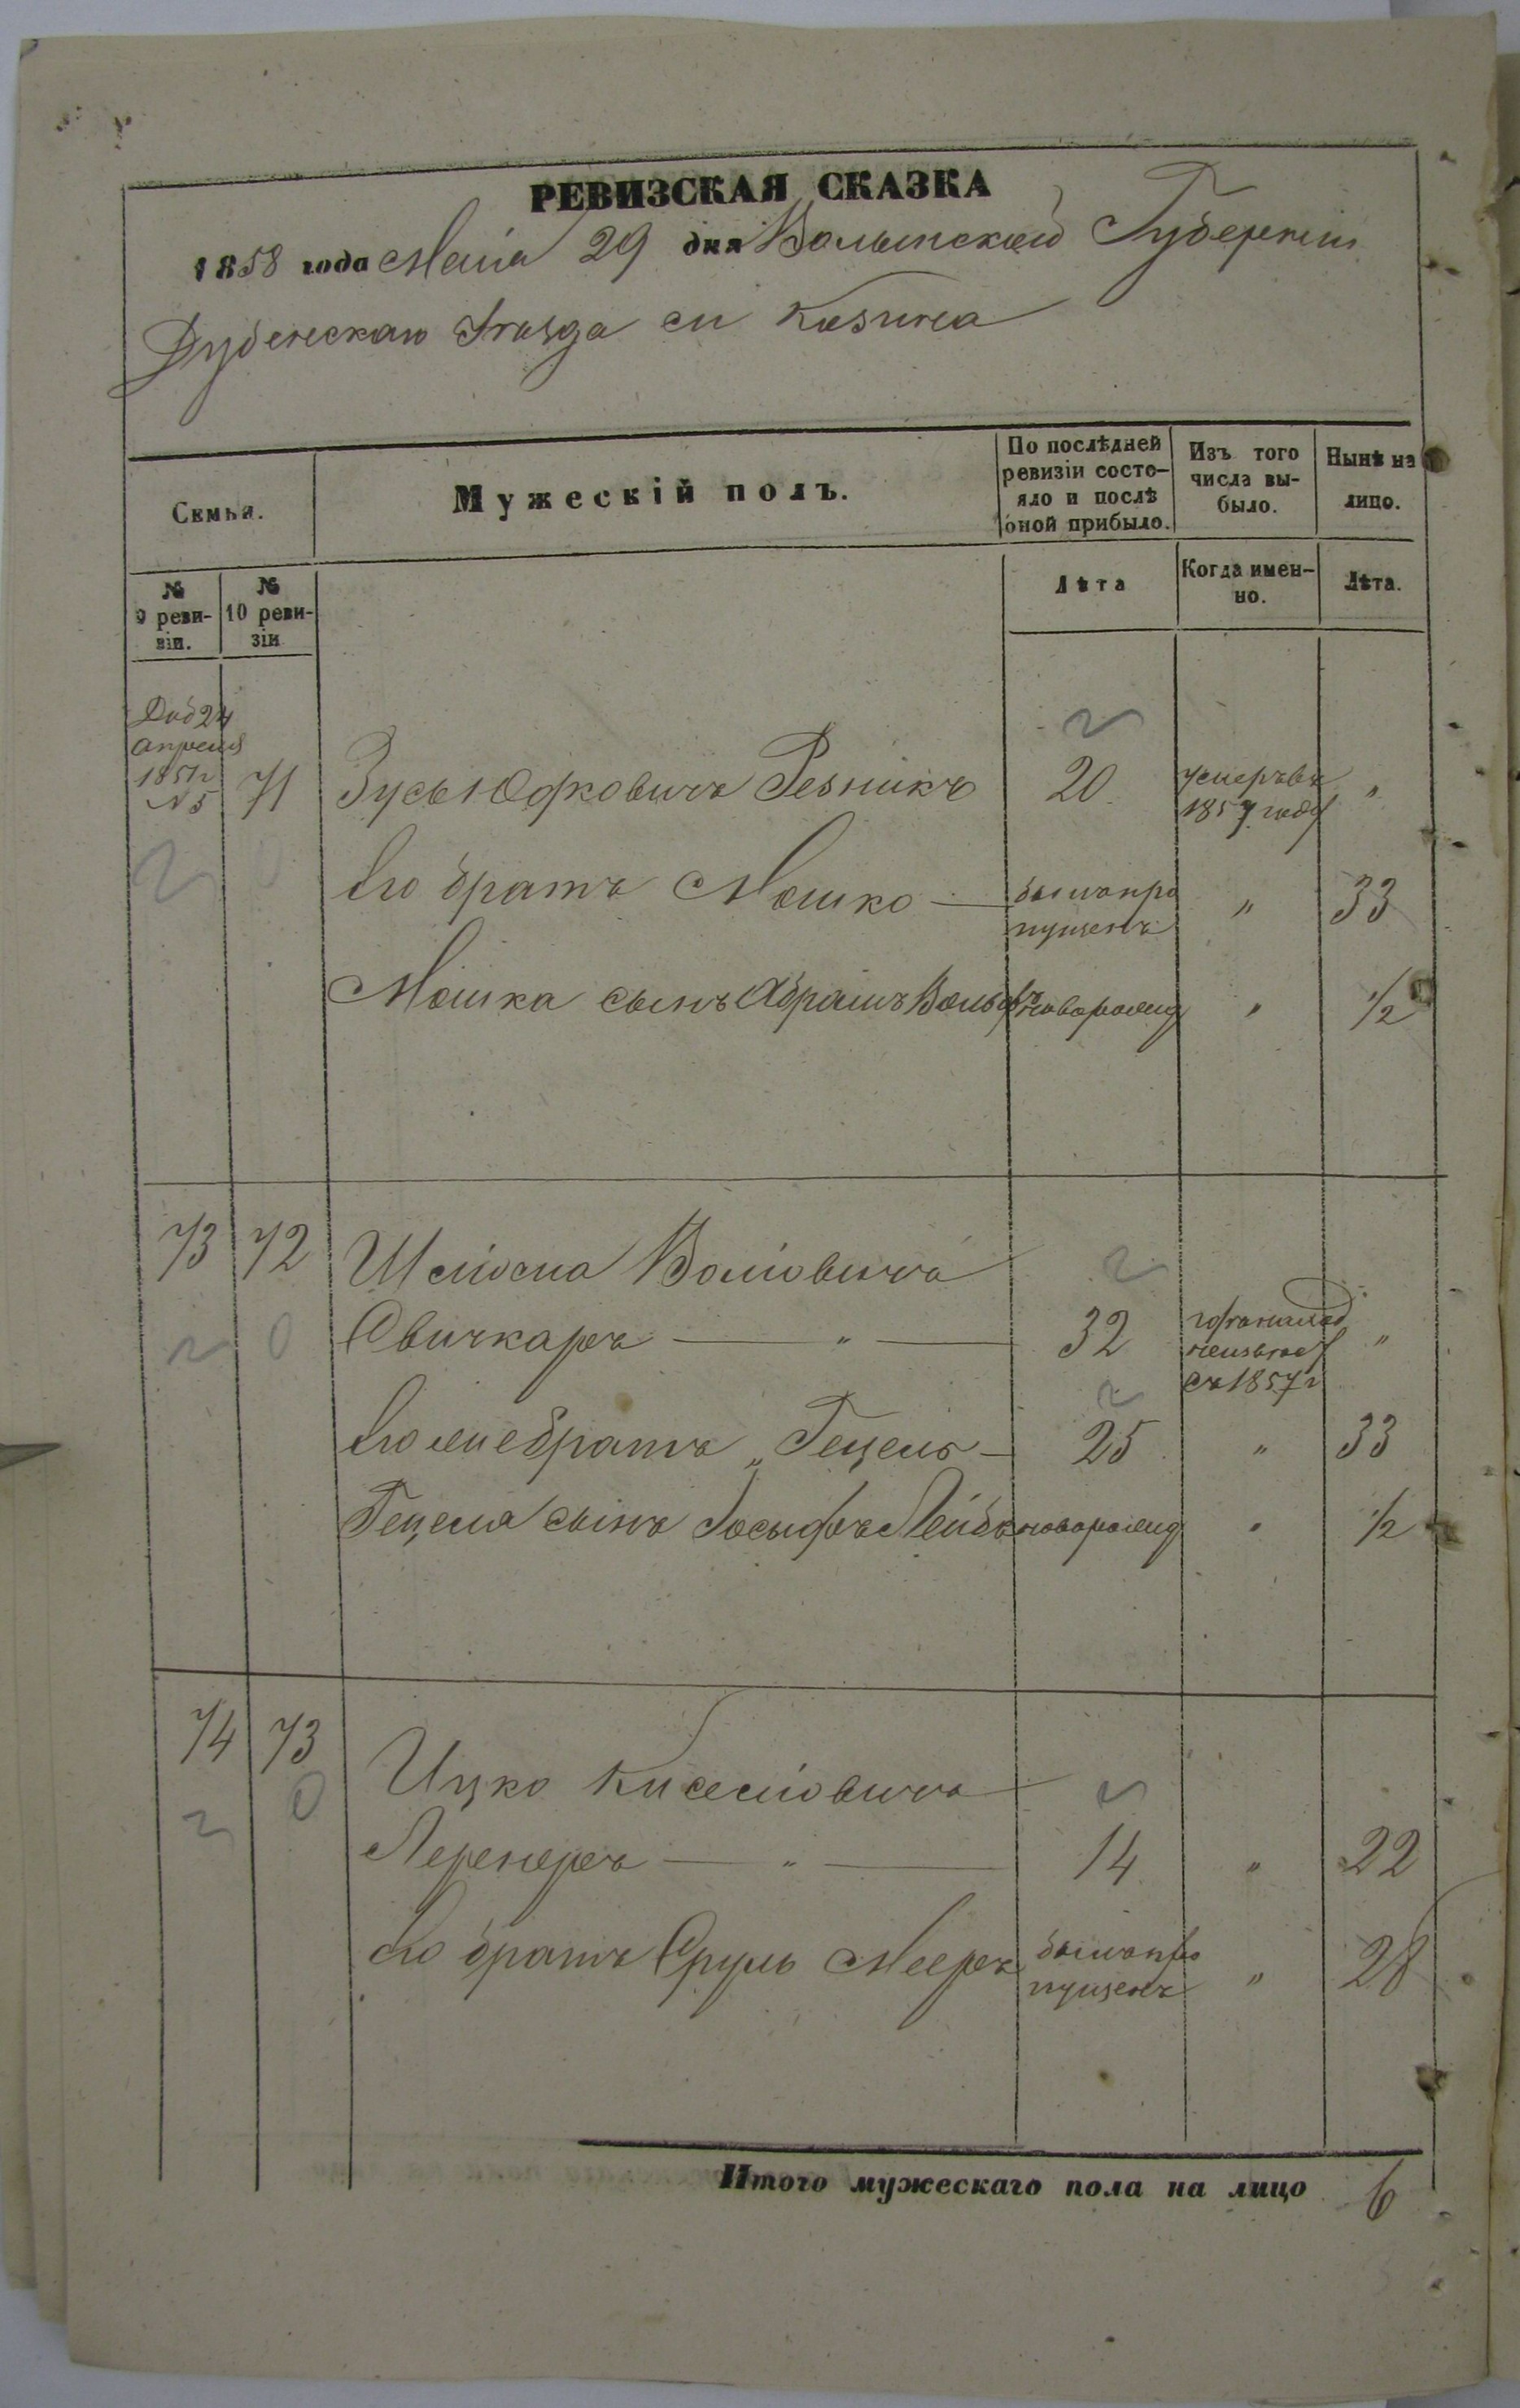 РЕВИЗСКАЯ СКАЗКА
1858 года Маія 29 дня Волынской Губерніи
Дубенскаго Уезда м Козина
Семья.
Мужескій полъ.
По послѣдней ревизіи состо-
яло и послѣ
оной прибыло.
Изъ того
числа вы-
было.
Нынѣ на
лицо.
№
9 реви-
зіи.
№
10 реви-
зіи
Лѣта
Когда имен-
но.
Лѣта.
Доб 24
апреля
1851 г
N 5
71
Зусь Юфковичъ Резникъ
20
умеръ въ
1857 году
"
Его братъ Мошко
было про
пущенъ
"
33
Мошка сынъ Абрамъ Вольфъ
новорожд
"
1/2
73
72
Шліома Волiовичъ
Свичкаръ — " —
32
неизвест
съ 1857 г
"
Его же братъ „ Гецель —
25
"
33
Гецеля сынъ Іосыфъ Лейба
новорожд
"
1/2
74
73
Ицко Киселiовичъ
Лернеръ — " —
14
"
22
Его братъ Сруль Мееръ
было про
пущенъ
"
28
Итого мужескаго пола на лицо
6